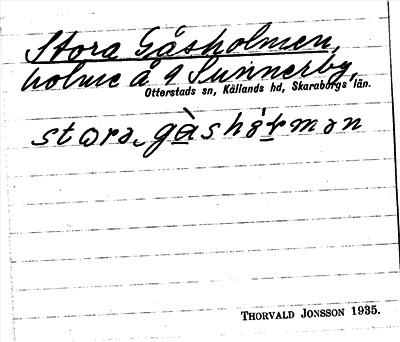 Stora Gåsholmen,
holme å 9 Sunnerby,
Otterstads sn, Kållands hd, Skaraborgs län.
THORVALD JONSSON 1935.